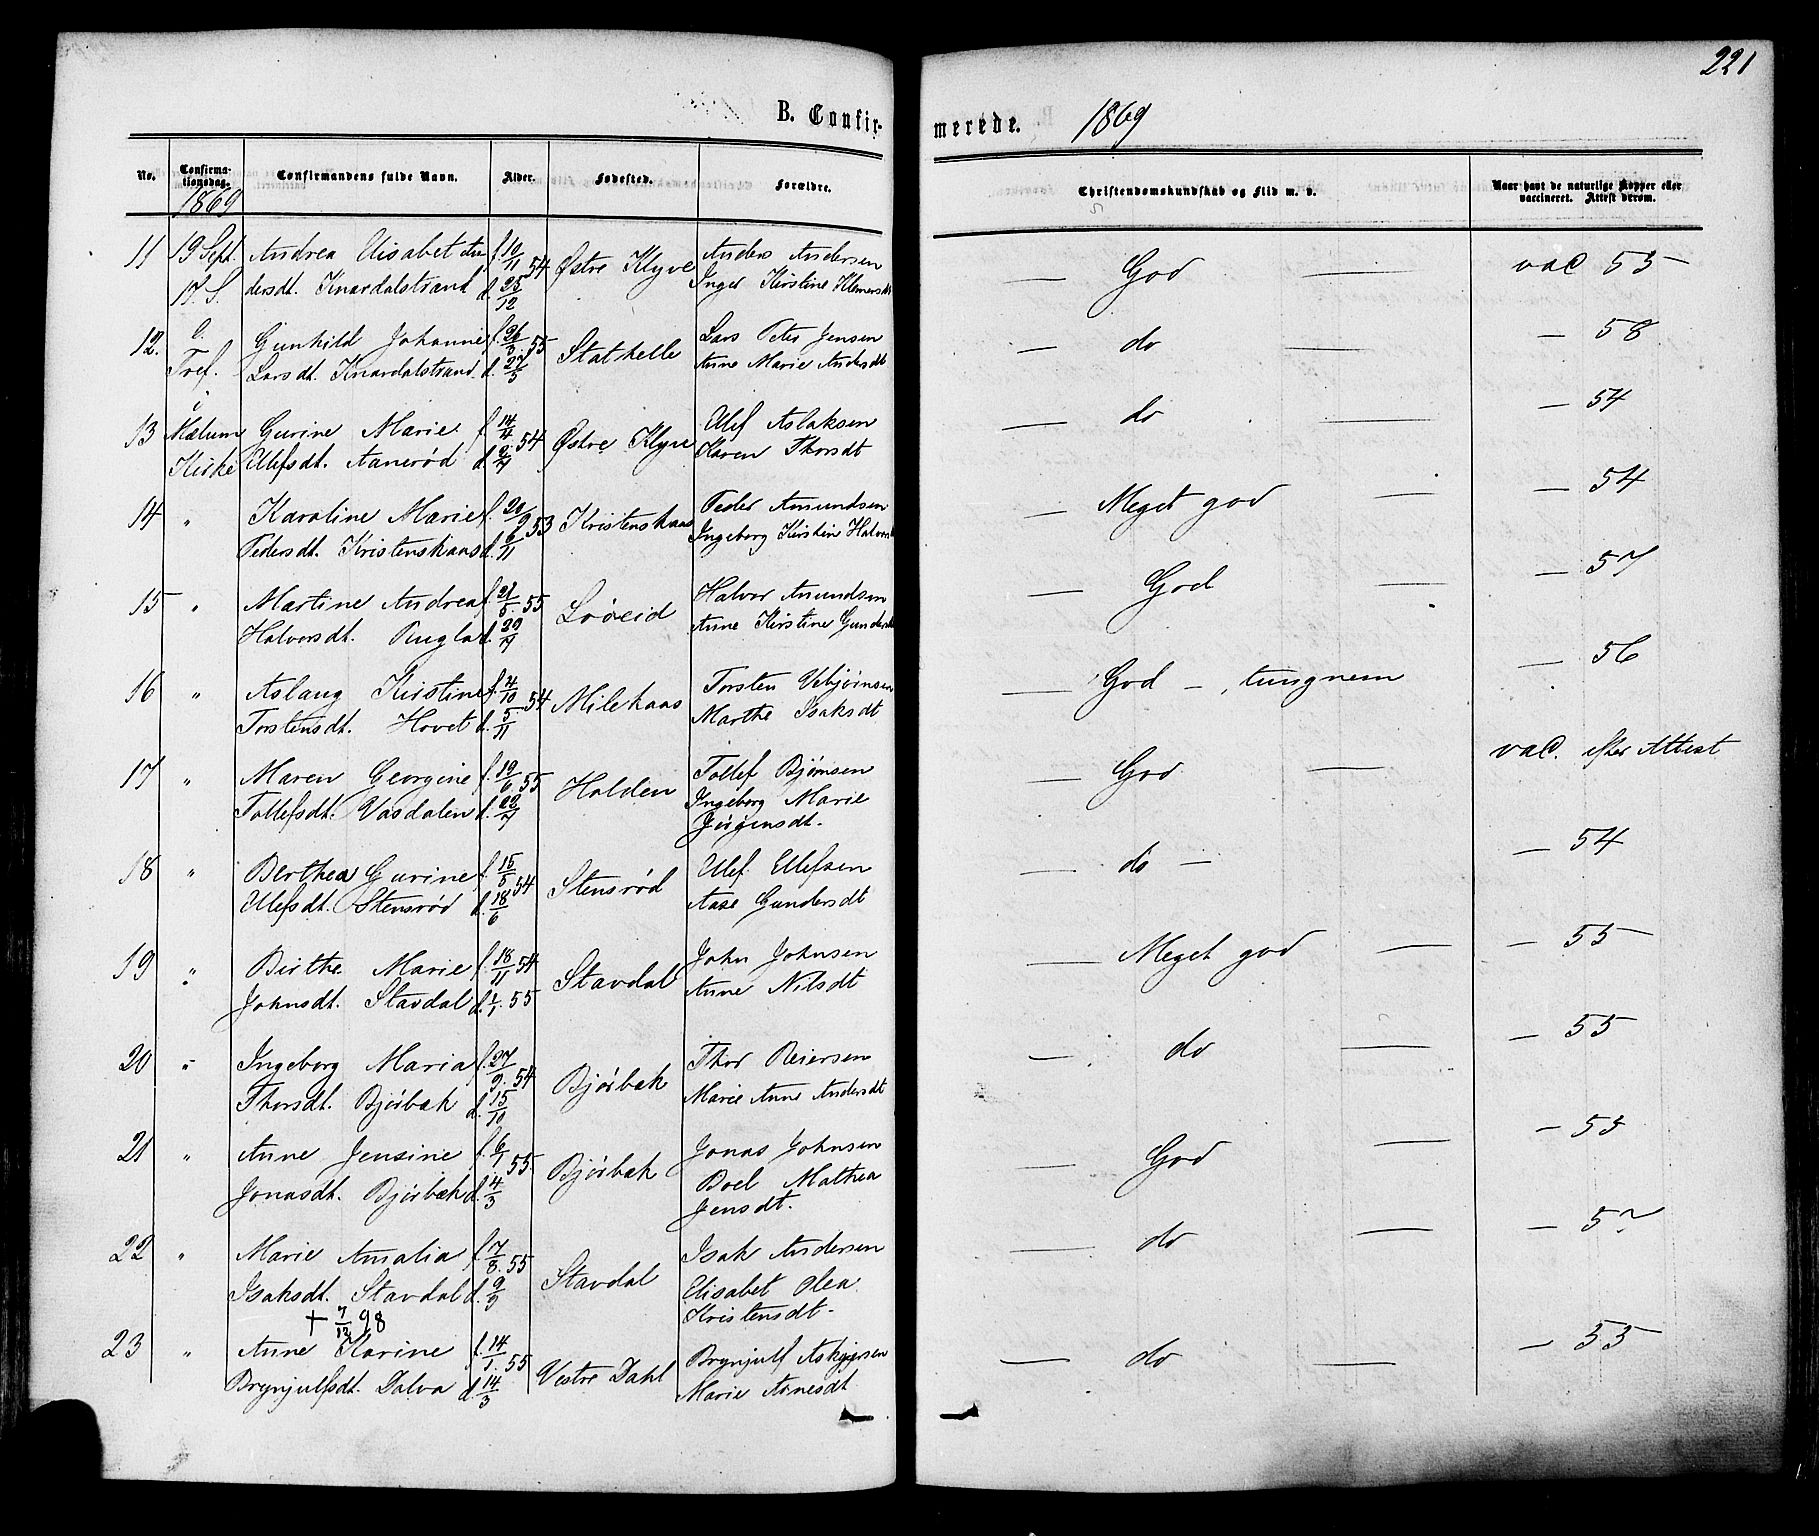 221
B. Confir-
merede. 1869
No.
Confirma-
tionsdag.
1869
Confirmandens fulde Navn.
Alder.
Fødested.
Forældre.
Christendomskundskab og Flid m. v.
Naar havt de naturlige Kopper eller
vaccineret. Attest derom.
11 19 Sept. Andrea Elisabet An- f. 10/11 54 Østre Klyve Anders Andersen — God — vac 55
17. S. dersdt. Knardalstrand d. 25/12 Inger Kirstine Klemersdt
12. e. Gunhild Johanne f. 26/3 55 Stathelle Lars Peter Jensen — do — — 58
Tref. Larsdt. Knardalstrand d. 27/5 Anne Marie Andersdt
i
13 Mælum Gurine Marie f. 14/4 54 Østre Klyve Ulef Aslaksen — do — 54
Kirke Ulefsdt. Aanerød d. 9/7 Karen Thorsdt
14 " Karoline Marie f. 20/9 53 Kristenskaas Peder Amundsen — Meget god — — 54
Pedersdt. Kristenskaas d. 6/11 Ingeborg Kirstine Halvorsdt
15 " Martine Andrea f. 21/5 55 Løveid Halvor Amundsen — God — — 57
Halvorsdt. Ringla d. 29/7 Anne Kirstine Gundersdt
16 " Aslaug Kirstine f. 4/10 54 Milekaas Torsten Vebjørnsen — God —, tungnem — 56
Torstensdt. Hovet d. 5/11 Marthe Isaksdt
17 " Maren Georgine f. 19/6 55 Holden Tollef Bjørnsen — God — vac. efter Attest
Tollefsdt. Vasdalen d. 22/7 Ingeborg Marie
Jørgensdt.
18 " Berthea Gurine f. 15/5 54 Stensrød Ulef Ulefsen — do — — 54
Ulefsdt. Stensrød d. 18/6 Aase Gundersdt
19 " Birthe Marie f. 18/11 54 Stavdal John Johnsen — Meget god — — 55
Johnsdt. Stavdal d. 1/1. 55 Anne Nilsdt
20 " Ingeborg Maria f. 27/9. 54 Bjørbæk Thor Reiersen — do — — 55
Thorsdt. Bjørbæk d. 15/10 Marie Anne Andersdt
21 " Anne Jensine f. 6/1 55 Bjørbæk Jonas Johnsen — God — — 55
Jonasdt. Bjørbæk d. 4/3 Boel Mathea
Jensdt.
22 " Marie Amalia f. 7/8. 55 Stavdal Isak Andersen — do — — 57
Isaksdt. Stavdal d. 9/9 Elisabet Olea
+ 7/12 98 Kristensdt.
23 " Anne Karine f. 14/1. 55 Vestre Dahl Brynjulf Askjersen — do — — 55
Brynjulfsdt. Dalva d. 14/3 Marie Arnesdt